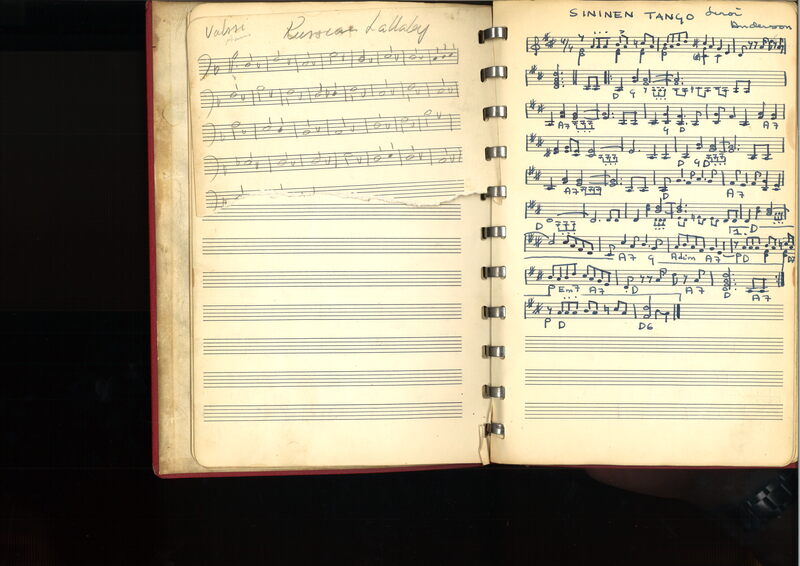 Valssi Russian Lullaby
SININEN TANGO Leroi
Anderson
D G
A7 G D A7
D G D
A7 D A7
D 1. D
A7 G Adim A7 D D7
Em7 A7 D A7 D A7
D D6